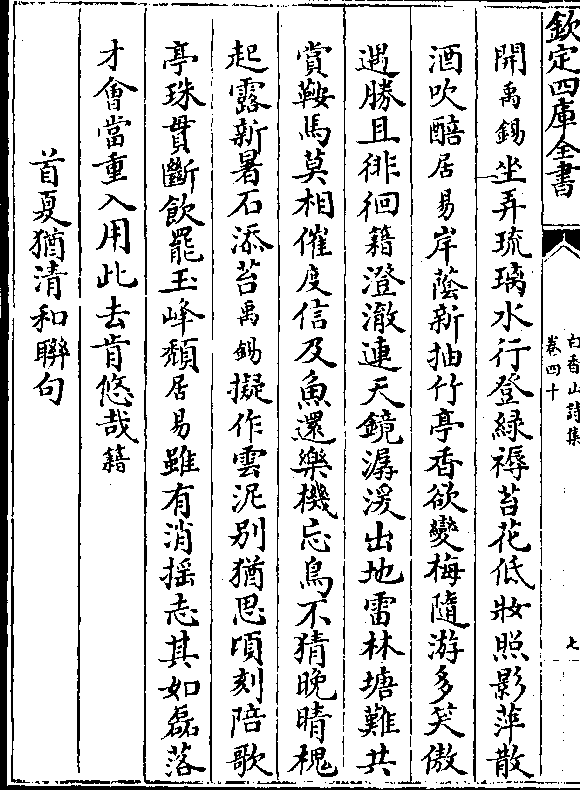 欽定四庫全書
白香山詩集
卷四十
七
開禹錫坐弄琉璃水行登緑褥苔花低妝照影萍散
酒吹醅居易岸蔭新抽竹亭香欲變梅隨游多笑傲
遇勝且徘徊籍澄澈連天鏡潺湲出地雷林塘難共
賞鞍馬莫相催度信及魚還樂機忘鳥不猜晩晴槐
起露新暑石添苔禹錫擬作雲泥别猶思頃刻陪歌
亭珠貫斷飲罷玉峰頽居易雖有消摇志其如磊落
才會當重入用此去肯悠哉籍
首夏猶清和聯句